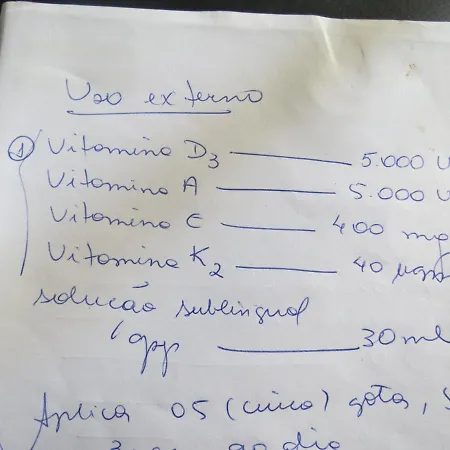 Uso externo
① Vitamina D3 — 5.000 U
Vitamina A — 5.000 U
Vitamina E — 400 mg
Vitamina K2 — 40 µg
solução sublingual
qsp — 30 ml
Aplica 05 (cinco) gotas,
ao dia